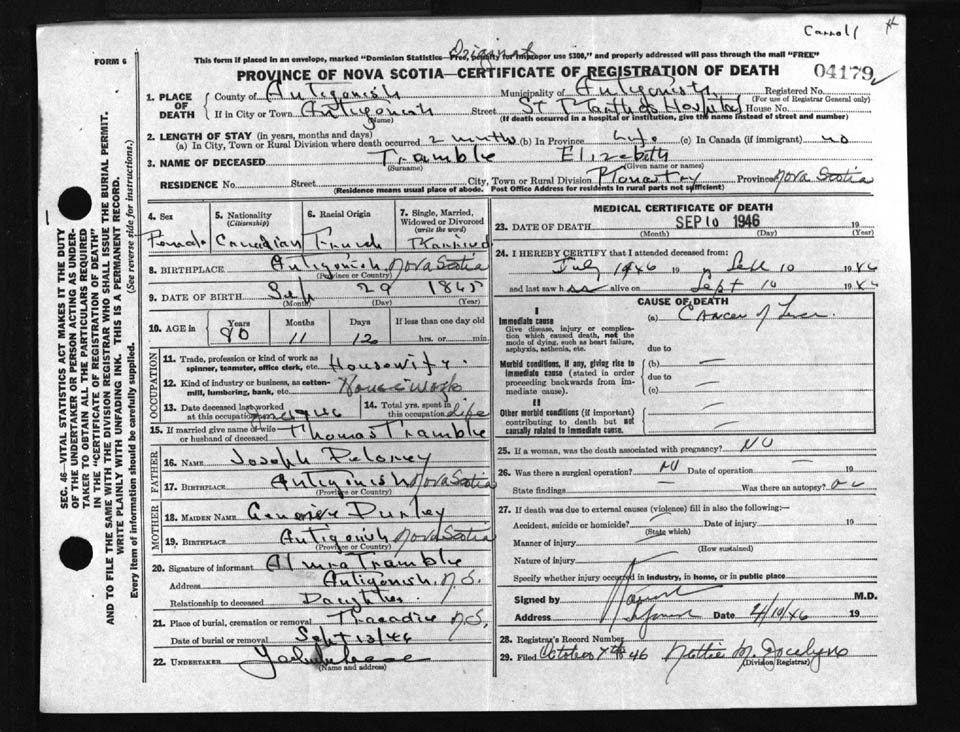 Carroll
Original
FORM 6
This form if placed in an envelope, marked "Dominian Statistics—Free, penalty for improper use $300," and properly addressed will pass through the mail "FREE"
PROVINCE OF NOVA SCOTIA—CERTIFICATE OF REGISTRATION OF DEATH
04179
1. PLACE OF DEATH { County of Antigonish Municipality of Antigonish Registered No.
(For use of Registrar General only)
If in City or Town Antigonish Street St Martha's Hospital House No.
(Name) (If death occurred in a hospital or institution, give the name instead of street and number)
2. LENGTH OF STAY (in years, months and days)
(a) In City, Town or Rural Division where death occurred 2 months (b) In Province Life (c) In Canada (if immigrant) no
3. NAME OF DECEASED Tramble Elizabeth
(Surname) (Given name or names)
RESIDENCE No. Street City, Town or Rural Division Monastry Province Nova Scotia
(Residence means usual place of abode. Post Office Address for residents in rural parts not sufficient)
4. Sex Female
5. Nationality (Citizenship) Canadian
6. Racial Origin French
7. Single, Married, Widowed or Divorced (write the word) Married
8. BIRTHPLACE Antigonish, Nova Scotia
(Province or Country)
9. DATE OF BIRTH Sep 29 1865
(Month) (Day) (Year)
10. AGE in Years Months Days If less than one day old
80 11 12 hrs. or min.
OCCUPATION
11. Trade, profession or kind of work as spinner, teamster, office clerk, etc. Housewife.
12. Kind of industry or business, as cotton-mill, lumbering, bank, etc. House Work
13. Date deceased last worked at this occupation June 1946
14. Total yrs. spent in this occupation Life
15. If married give name of wife or husband of deceased Thomas Tramble
FATHER
16. NAME Joseph Delorey
17. BIRTHPLACE Antigonish Nova Scotia
(Province or Country)
MOTHER
18. MAIDEN NAME Genevive
19. BIRTHPLACE Antigonish Nova Scotia
(Province or Country)
20. Signature of informant Almira Tramble
Address Antigonish, N.S.
Relationship to deceased Daughter
21. Place of burial, cremation or removal Tracadie N.S,
Date of burial or removal Sept 13/46
22. UNDERTAKER
(Name and address)
MEDICAL CERTIFICATE OF DEATH
23. DATE OF DEATH SEP 10 1946 19
(Month) (Day) (Year)
24. I HEREBY CERTIFY that I attended deceased from:
July 1946 19 to Sept 10 1946
and last saw h alive on Sept 10 1946
CAUSE OF DEATH
I
Immediate cause (a) Cancer of Liver.
Give disease, injury or complication which caused death, not the mode of dying, such as heart failure, asphyxia, asthenia, etc. due to
Morbid conditions, if any, giving rise to immediate cause (stated in order proceeding backwards from immediate cause). (b) —
due to —
(c) —
II
Other morbid conditions (if important) contributing to death but not causally related to immediate cause. —
25. If a woman, was the death associated with pregnancy? NO
26. Was there a surgical operation? NO Date of operation — 19
State findings — Was there an autopsy? no
27. If death was due to external causes (violence) fill in also the following:—
Accident, suicide or homicide? Date of injury 19
(State which)
Manner of injury
(How sustained)
Nature of injury
Specify whether injury occurred in industry, in home, or in public place
Signed by M.D.
Address Date 2/10/46 19
28. Registrar's Record Number
29. Filed October 7th 46 Nettie M. Jocelyn
(Division Registrar)
SEC. 46—VITAL STATISTICS ACT MAKES IT THE DUTY OF THE UNDERTAKER OR PERSON ACTING AS UNDERTAKER TO OBTAIN ALL THE PARTICULARS REQUIRED IN THE "CERTIFICATE OF REGISTRATION OF DEATH"
AND TO FILE THE SAME WITH THE DIVISION REGISTRAR WHO SHALL ISSUE THE BURIAL PERMIT.
WRITE PLAINLY WITH UNFADING INK. THIS IS A PERMANENT RECORD.
Every item of information should be carefully supplied. (See reverse side for instructions.)